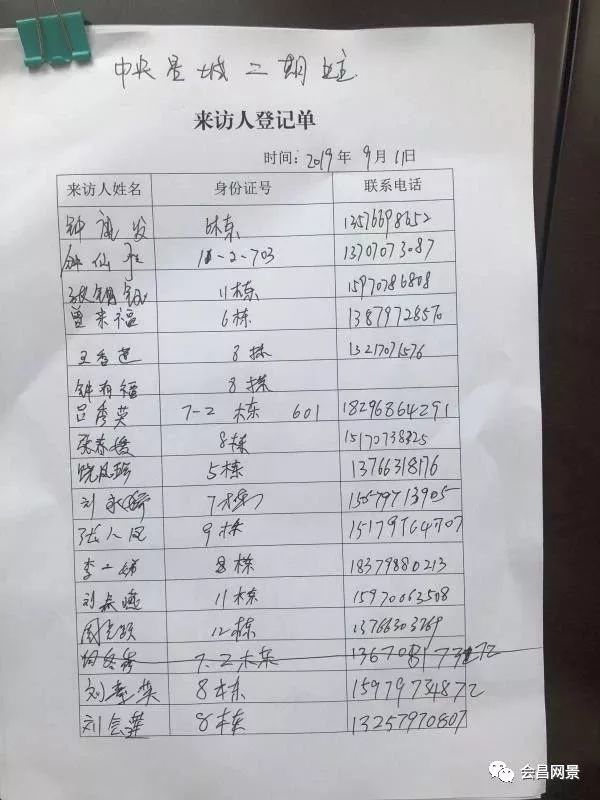 中央星城二期业主
来访人登记单
时间：2019年 9月 11日
来访人姓名 身份证号 联系电话
钟 发 6栋 13576698652
钟仙 11-2-703 13707073087
11栋 15970786808
曾来福 6栋 13879728570
王香莲 8栋 13217071576
钟有福 8栋
吕秀英 7-2 栋 601 18296864291
张春 8栋
5栋 13766318176
刘永 7栋 15579713905
张人凤 9栋
李 8栋 18379880213
刘春燕 11栋 15970063508
周 12栋 13766303769
7-2栋
刘 8栋 15979734872
刘会莲 8栋 13257970807
会昌网景